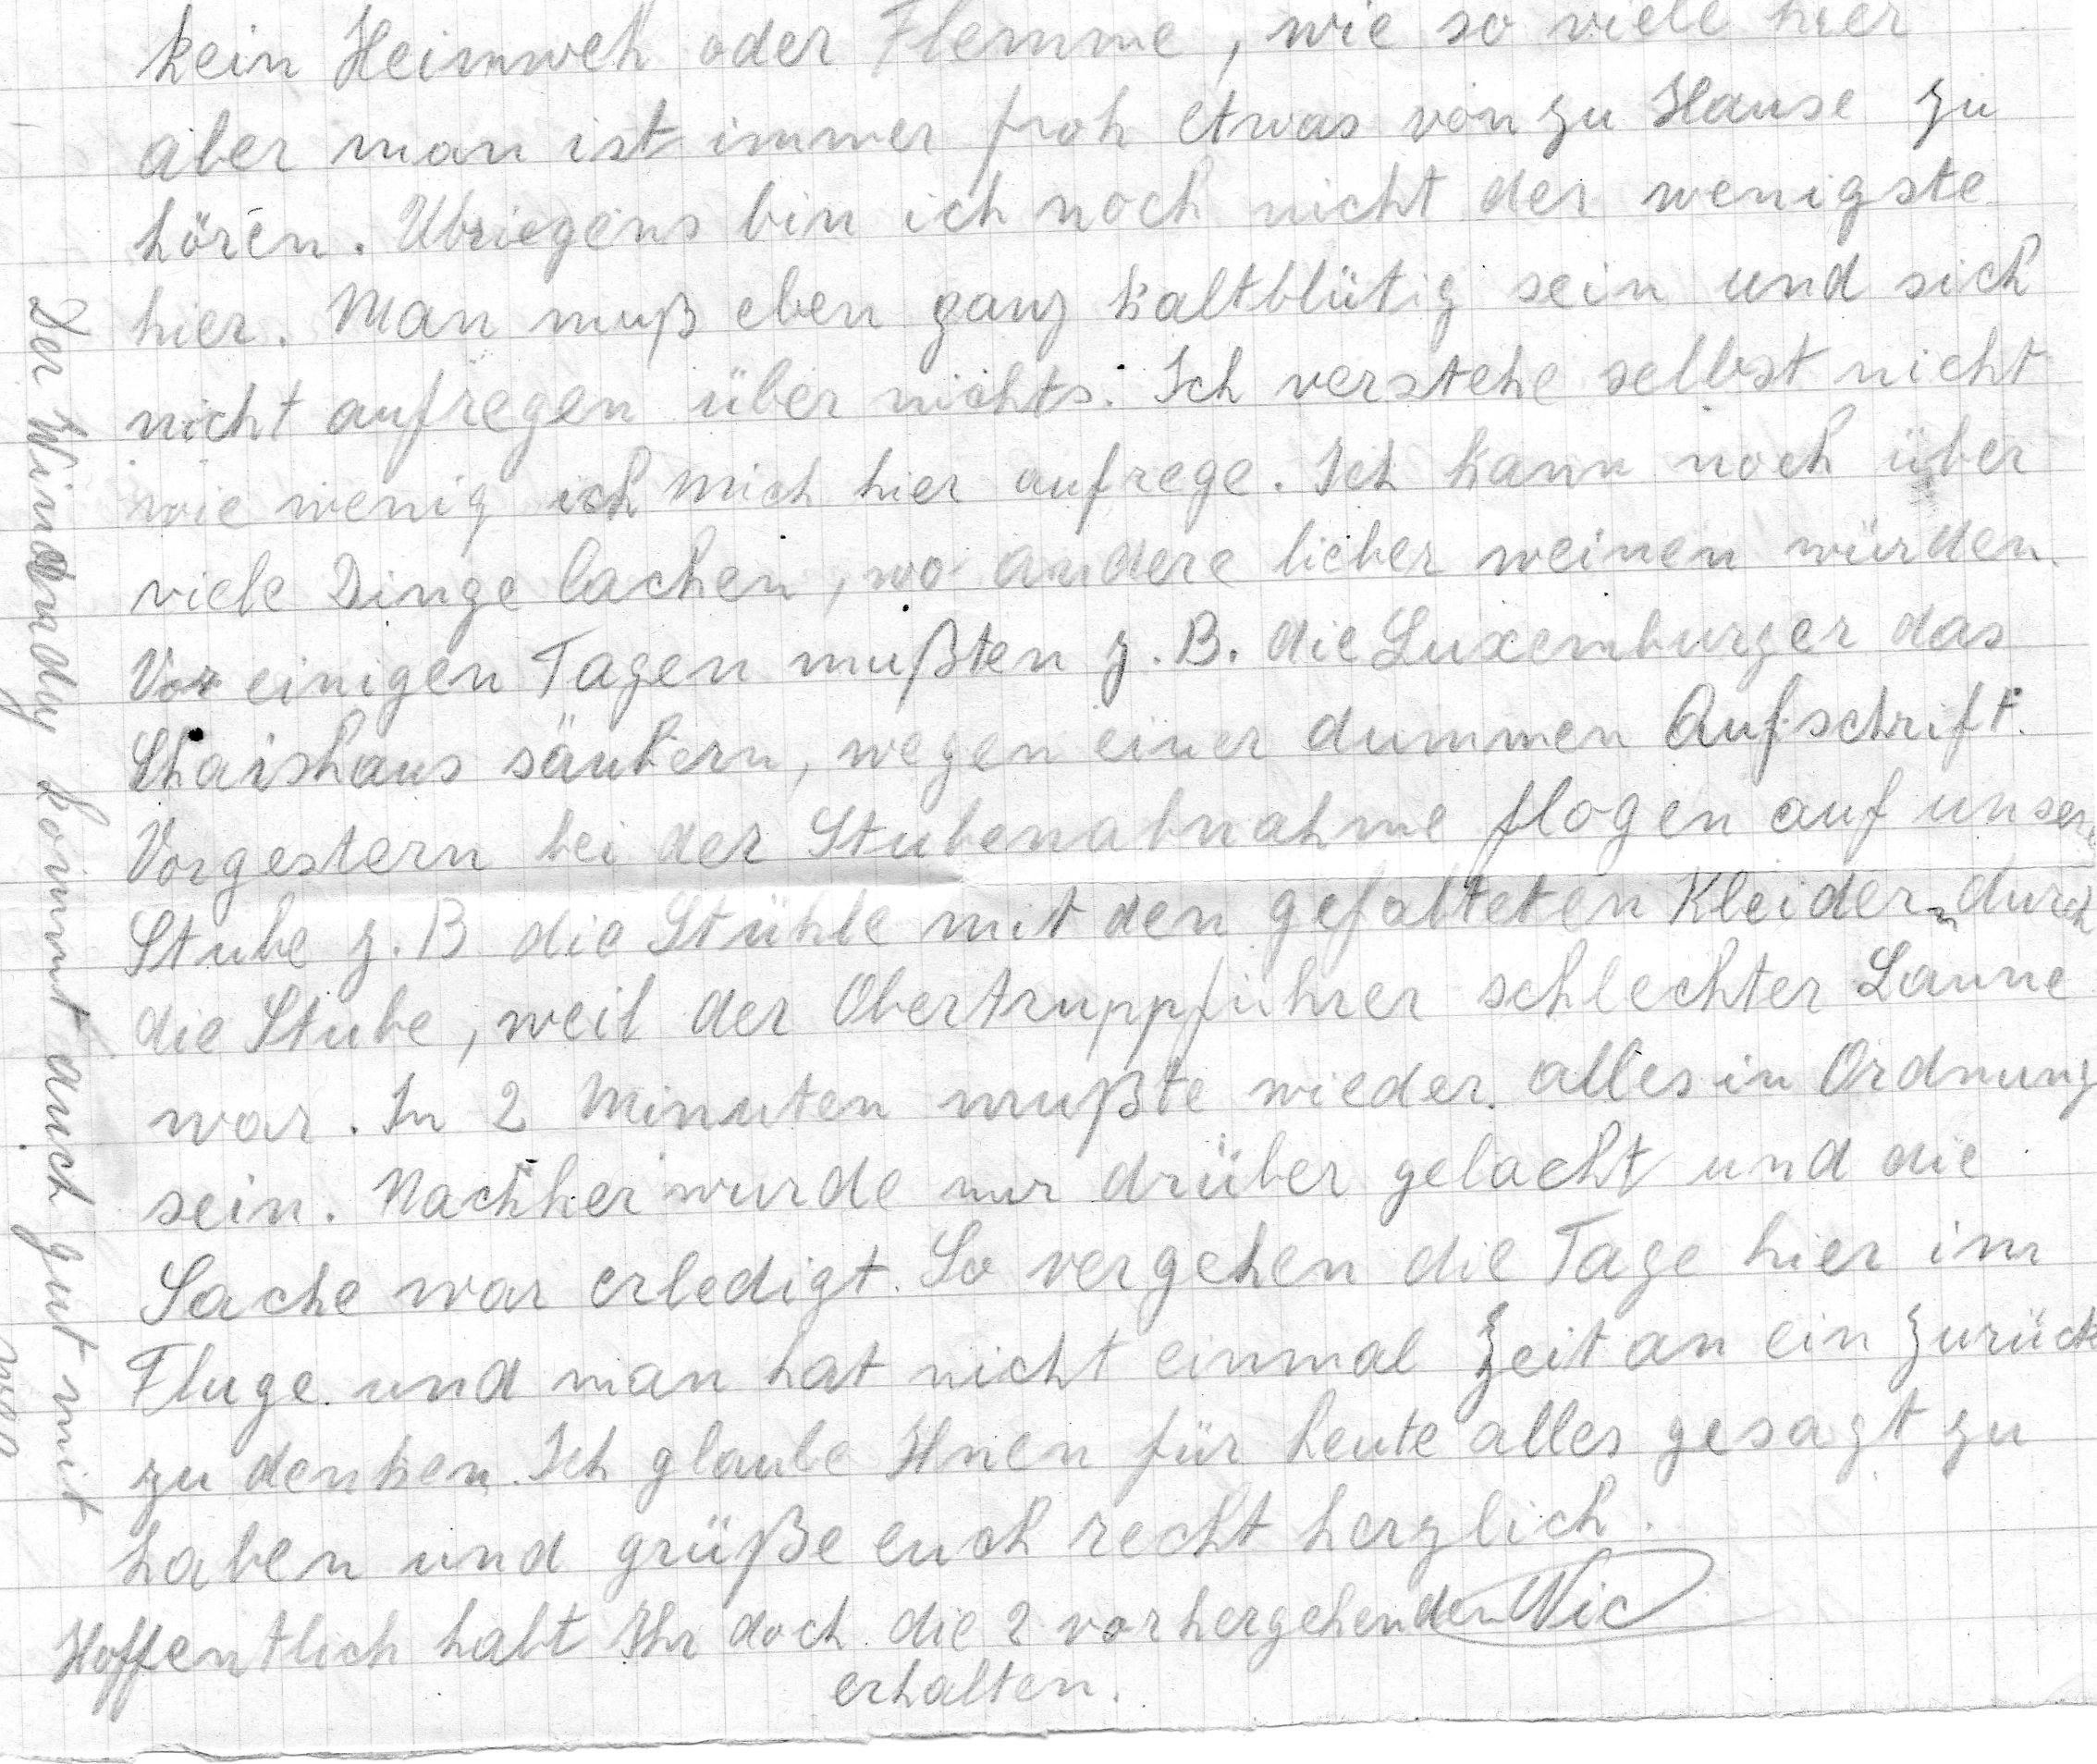 kein Heimweh oder Flemme, wie so viele hier
aber man ist immer froh etwas von zu Hause zu
hören. Übriegens bin ich noch nicht der wenigste
hier. Man muß eben ganz kaltblütig sein und sich
nicht aufregen über nichts. Ich verstehe selbst nicht
wie wenig ich mich hier aufrege. Ich kann noch über
viele Dinge lachen, wo andere lieber weinen würden.
Vor einigen Tagen mußten z.B. die Luxemburger das
säubern, wegen einer dummen Aufschrift.
Vorgestern bei der Stubenabnahme flogen auf unser
Stube z.B. die Stühle mit den gefalteten Kleidern durch
die Stube, weil der Obertruppführer schlechter Laune
war. In 2 Minuten mußte wieder alles in Ordnung
sein. Nachher wurde nur drüber gelacht und die
Sache war erledigt. So vergehen die Tage hier im
Fluge und man hat nicht einmal Zeit an ein zurück
zu denken. Ich glaube Ihnen für heute alles gesagt zu
haben und grüße euch recht herzlich.
Nic
Hoffentlich habt Ihr doch die 2 vorhergehenden
erhalten.
Der kommt auch gut mit